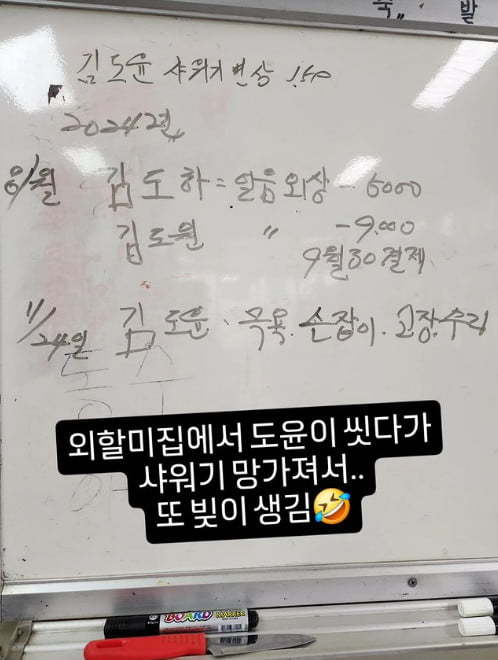 발
김도윤 샤워기변상 1.50
2024년
8/월 김도하=얼음외상 - 6000
김도윤 〃 -9.000
9월30결제
11/24일 김도윤. 목욕. 손잡이. 고장.수리
외할미집에서 도윤이 씻다가
샤워기 망가져서..
또 빚이 생김🤣
BOARD MARKER